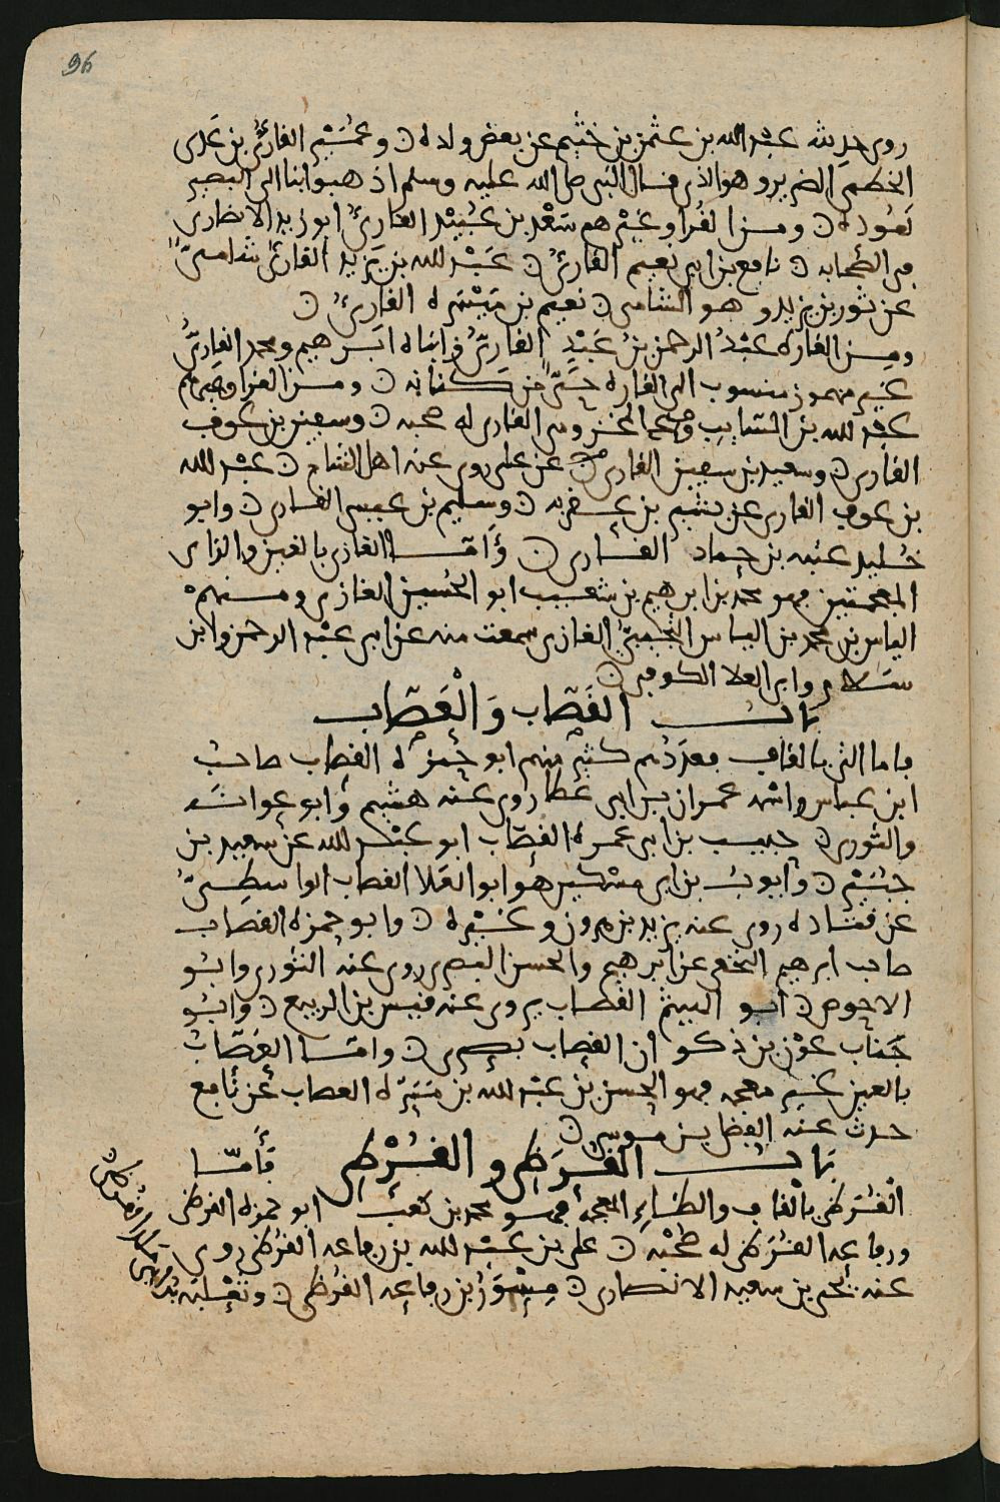 96
روى حديثه عبد الله بن عثمن بن خثيم عن بعض ولده ن وعمير القارئ بن عدى
الخطمى الضرير وهو الذى قال النبى صلى الله عليه وسلم اذهبوا بنا الى البصير
نعوده ن ومن القراء وغيرهم سعد بن عبيد القارئ ابو زيد الانصارى
من الصحابه ن نافع بن ابى نعيم القارئ ن عبد الله بن يزيد القارئ شامىّ
عن ثور بن يزيد وهو الشامى ن نعيم بن ميسره القارئ ن
ومن القاره عبد الرحمن بن عبد القارىّ وابناه ابرهيم ومحمد القارىّ
غير مهموز منسوب الى القاره حىّ من كنانه ن ومن القرا وغيرهم
عبد الله بن السايب المخزومى القارى له صحبه ن وسعيد بن عوف
القارى ن وسعيد بن سعيد القارى ن عن على روى عنه اهل الشام ن عبد الله
بن عوف القارى عن بشير بن عقربه ن وسليم بن عيسى القارى ن وابو
خليد عتبه بن حماد القارى ن وأمّا الغازى بالغين والزاى
المعجمتين فهو محمد بن ابرهيم بن شعيب ابو الحسين الغازى ومنهم
الياس بن محمد بن الياس التجيبىّ الغازى سمعت منه عن ابى عبد الرحمن وابن
سلام وابى العلا الكوفى ن
باب القَصّاب وَالْعَصّاب
فاما الذى بالقاف فعددهم كثير منهم ابو حمزه القصاب صاحب
ابن عباس واسمه عمران بن ابى عطا روى عنه هشيم وابو عوانه
والثورى ن حبيب بن ابى عمره القصّاب ابو عبد الله عن سعيد بن
جبير ن وأيوب بن ابى مسكين هو ابو العلا القصاب الواسطىّ
عن قتاده روى عنه يزيد بن هرون وغيره ن وابو حمزه القصاب
صاحب ابرهيم النخعى عن ابرهيم والحسن البصرى روى عنه الثورى وابو
الاحوص ن ابو الهيثم القصاب يروى عنه قيس بن الربيع ن وابو
جناب عون بن ذكوان القصاب بصرى ن وامّا العصّاب
بالعين غير معجمه فهو الحسن بن عبد الله بن ميسره العصاب عن نافع
حدث عنه الفضل بن موسى ن
باب القُرَظِى والقُرْطِى فأمّا
القرظى بالقاف والظاء المعجمه فهو محمد بن كعب ابو حمزه القرظى
ورفاعه القرظى له صحبه ن على بن عبد الله بن رفاعه القرظى روى
عنه يحيى بن سعيد الانصارى ن مسور بن رفاعه القرظى ن وثعلبه بن